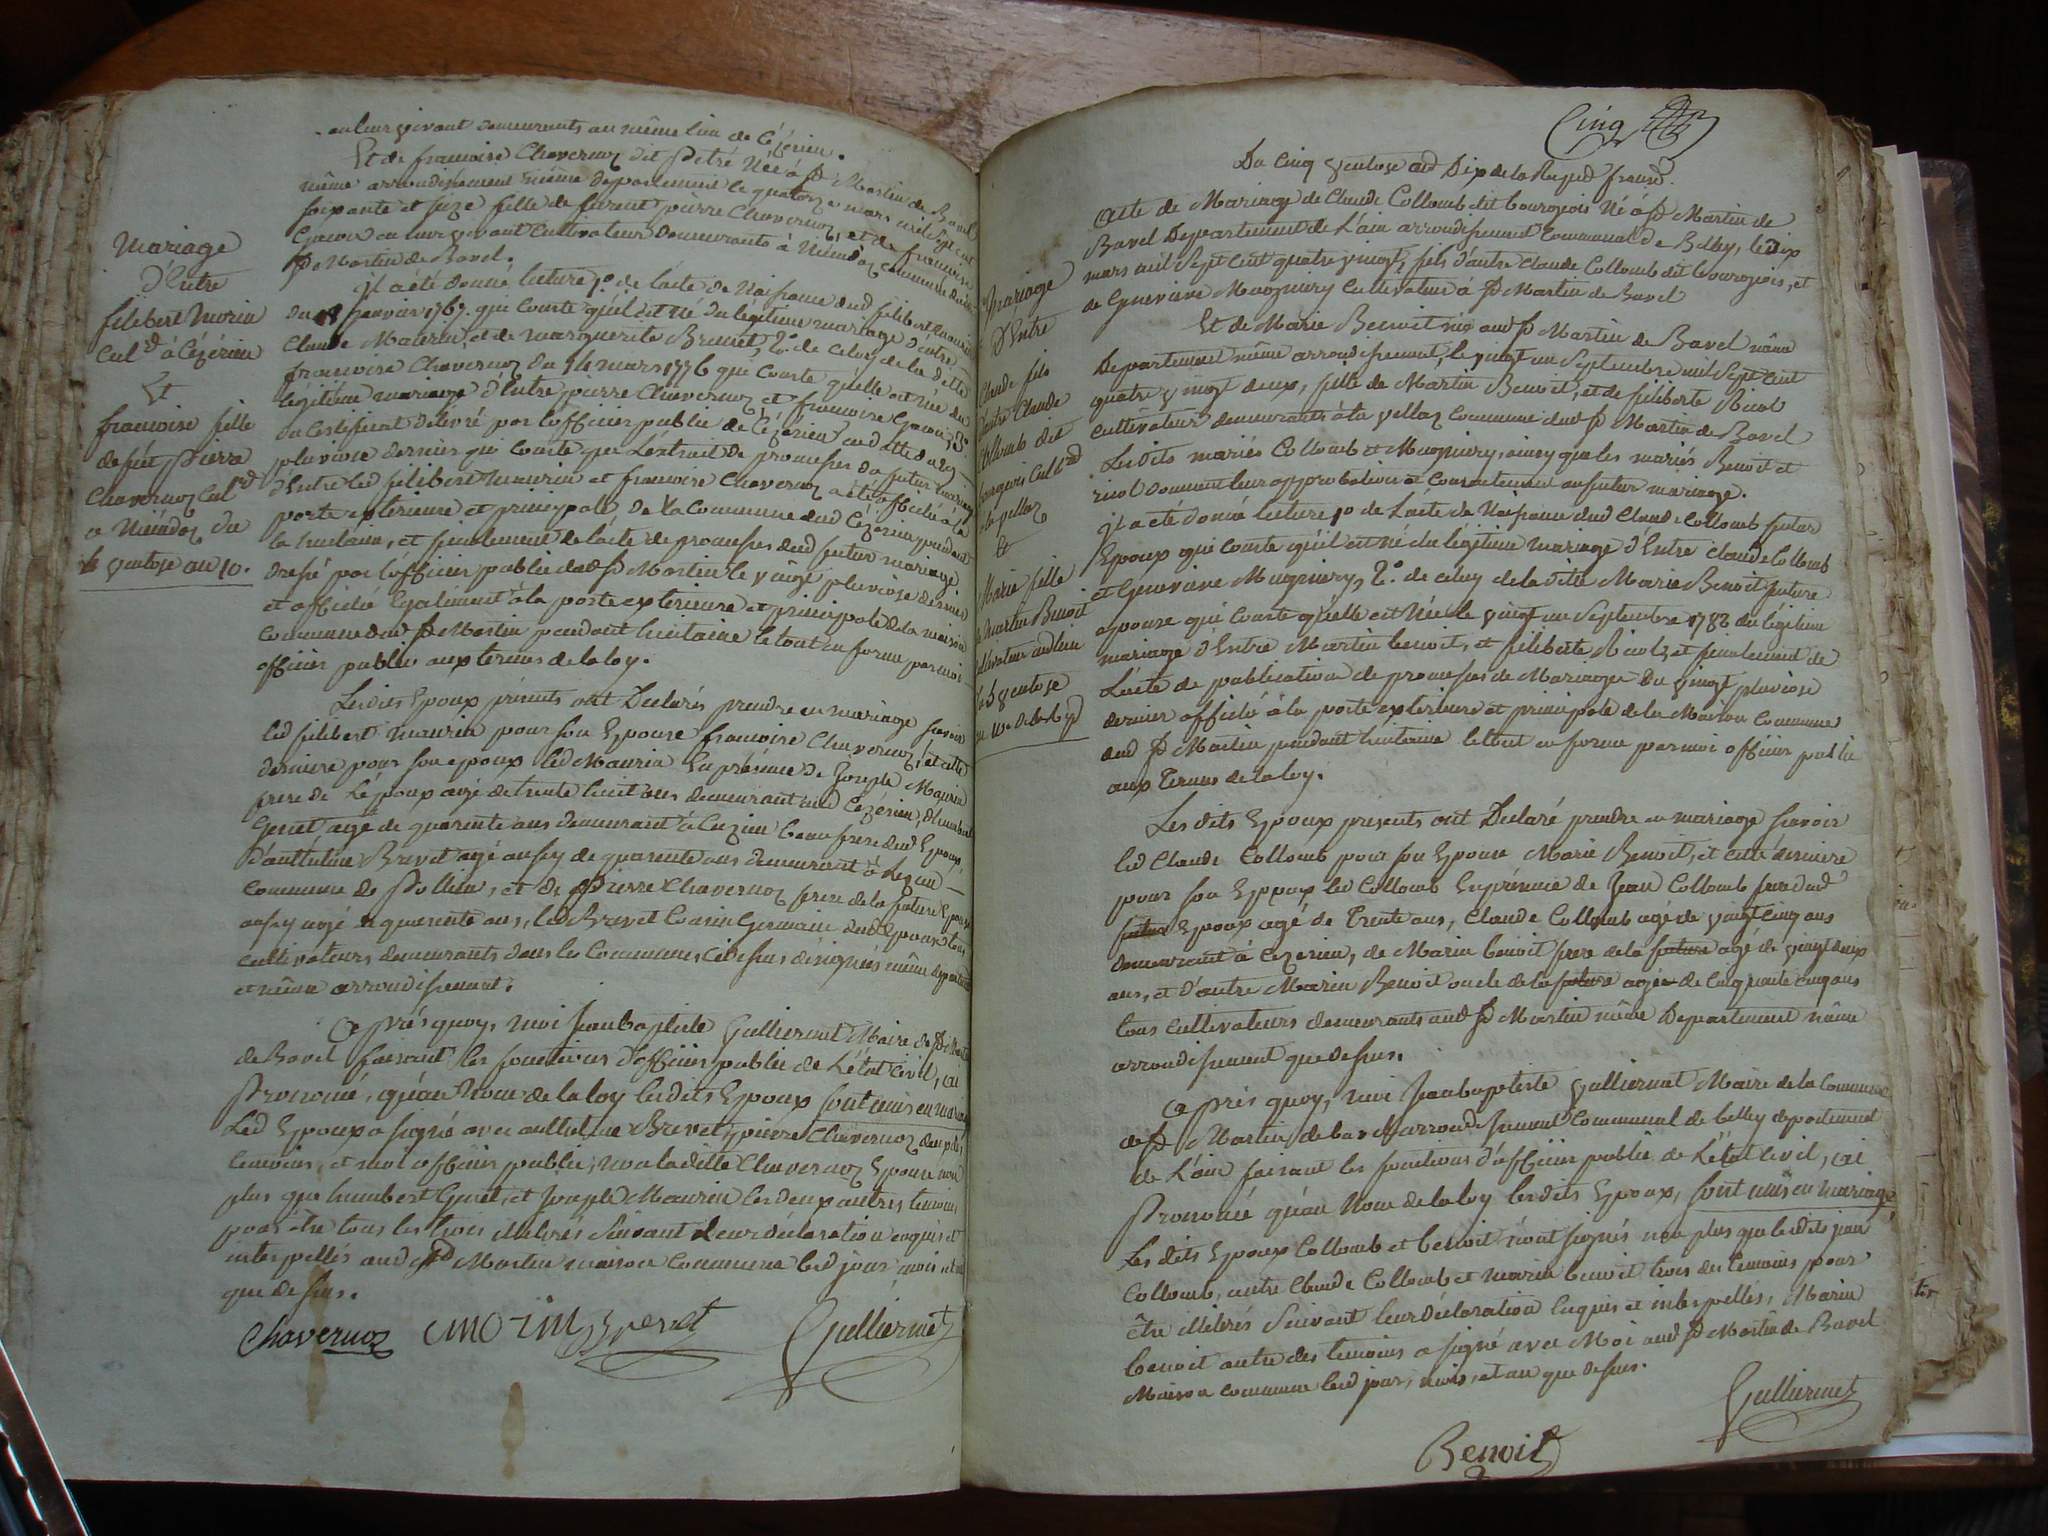 en leur vivant demeurants au même lieu de Cézérieu.
Et de francoise Chavernoz dit Petré Née à St Martin de Bavel
même arrondissement même departement le quatorze mars mil sept cent
soixante et seize fille de furent pierre Chavernoz, et de francoise
en leur vivant Cultivateurs demeurants à commune dud.
St Martin de Bavel.
il a été donné lecture 1o de lacte de Naissance dud filibert Maurin
du 18 janvier 1767. qui Conste qu'il est né du légitime mariage d'entre
Claude Maurin, et de marguerite Brunet, 2o de celuy de la dette
francoise Chavernoz du 14 mars 1776 qui Conste qu'elle est née du
légitime mariage d'Entre pierre Chavernoz et francoise 3o
du Certificat délivré par l'officier public de Cézérieu en datte du
pluviose dernier qui Conste que L'extrait de promesses du futur mariage
d'Entre led filibert Maurin et francoise Chavernoz a été affiché à la
porte exterieure et principale de la Commune dud Cézérieu pendant
la huitaine, et finalement de lacte de promesses dud futur mariage
dressé par l'officier public dud St Martin le vingt pluviose dernier
et affiché Egalement à la porte exterieure et principale de la maison
Commune dud St Martin pendant huitaine le tout en forme par moi
officier public aux termes de la loy.
Lesdits Epoux présents ont Declarés prendre en mariage savoir
led filibert Maurin pour son Epouse francoise Chavernoz, et cette
derniere pour son epoux led Maurin En présence de Joseph Maurin
frere de L'époux agé de trente huit ans demeurant aud Cézérieu, d'humbert
Genet agé de quarente ans demeurant à beau frere dud Epoux,
d'anthelme Brevet agé aussy de quarente ans demeurant à
Commune de Pollieu, et de Pierre Chavernoz frere de la future Epouse
aussy agé de quarente ans, led Brevet Cousin Germain dud Epoux tous
cultivateurs demeurants dans les Communes Cidessus désignés même département
et même arrondissement.
Après quoy, moi Jean baptiste Gulliermet Maire de St Martin
de Bavel faisant les fonctions d'officier public de L'état Civil, ai
Prononcé, qu'au Nom de la loy lesdits Epoux sont unis en mariage
Led Epoux a signé avec anthelme Brevet, pierre Chavernoz deux des
temoins, et moi officier public, non ladette Chavernoz Epouse non
plus que humbert Genet, et Joseph Maurin les deux autres temoins
pour être tous les trois illitérés suivant leur déclaration enquis et
interpellés aud St Martin maison Commune led jour mois et an
que dessus.
Chavernoz morin Brevet Gulliermet
Mariage
D'Entre
filibert Morin
Culd à Cézérieu
Et
francoise fille
de fut Pierre
Chavernoz Culd
du
ventose an 10.
Cinq
Du Cinq ventose an Dix de la Repub francse.
Acte de Mariage de Claude Collomb dit bourgeois Né à St Martin de
Bavel Departement de L'ain arrondissement Communal de Belley, le dix
mars mil sept cent quatre vingt, fils d'autre Claude Collomb dit bourgeois, et
de Genevieve Mugniery Cultivateur à St Martin de Bavel
Et de Marie Benoit née aud St Martin de Bavel même
Departement même arrondissement, le vingt un Septembre mil sept cent
quatre vingt deux, fille de Martin Benoit, et de filiberte Riect
cultivateur demeurants à la vellaz commune dud St Martin de Bavel
Lesdits mariés Collomb et Mugniery, ainsy que les mariés Benoit et
donnent leur approbation et Consentement au futur mariage.
il a été donné lecture 1o de L'acte de Naissance dud Claude Collomb futur
Epoux qui conste qu'il est né du légitime mariage d'Entre claude Collomb
et Genevieve Mugniery, 2o. de celuy de la dite Marie Benoit future
epouse qui Conste qu'elle est Née le vingt un Septembre 1782 du légitime
mariage d'Entre Martin benoit, et filiberte et finalement de
L'acte de publication de promesses de Mariage du vingt pluviose
dernier affiché à la porte exterieure et principale de la Maison Commune
dud St Martin pendant huitaine le tout en forme par moi officier public
aux Termes de la loy.
Lesdits Epoux presents ont Declaré prendre en mariage savoir
led Claude Collomb pour son Epouse Marie Benoit, et cette derniere
pour son Epoux led Collomb En présence de Jean Collomb frere dud
futur Epoux agé de Trente ans, Claude Collomb agé de vingt cinq ans
demeurant à Cezerieu, de Marin benoit frere de la future agé de vingt deux
ans, et d'autre Marin Benoit oncle de la future agé de Cinquante cinq ans
tous cultivateurs demeurants aud St Martin même Departement même
arrondissement que dessus.
Après quoy, moi Jean baptiste Gulliermet Maire de la Commune
de St Martin de bavel arrondissement Communal de belley departement
de L'ain faisant les fonctions d'officier public de L'état Civil, ai
Prononcé qu'au Nom de la loy lesdits Epoux, sont unis en mariage,
Les dits Epoux Collomb et benoit n'ont signés non plus que lesdits jean
Collomb, autre Claude Collomb et marin benoit trois des temoins pour
être illitérés suivant leur déclaration Enquis et interpellés, Marin
benoit autre des temoins a signé avec Moi aud St Martin de Bavel
Maison commune led jour, mois, et an que dessus.
Gulliermet
Benoit
Mariage
D'Entre
Claude fils
d'autre Claude
Collomb dit
bourgeois Cultd
la vellaz
Et
Marie fille
de Martin Benoit
cultivateur aud lieu
du 5 ventose